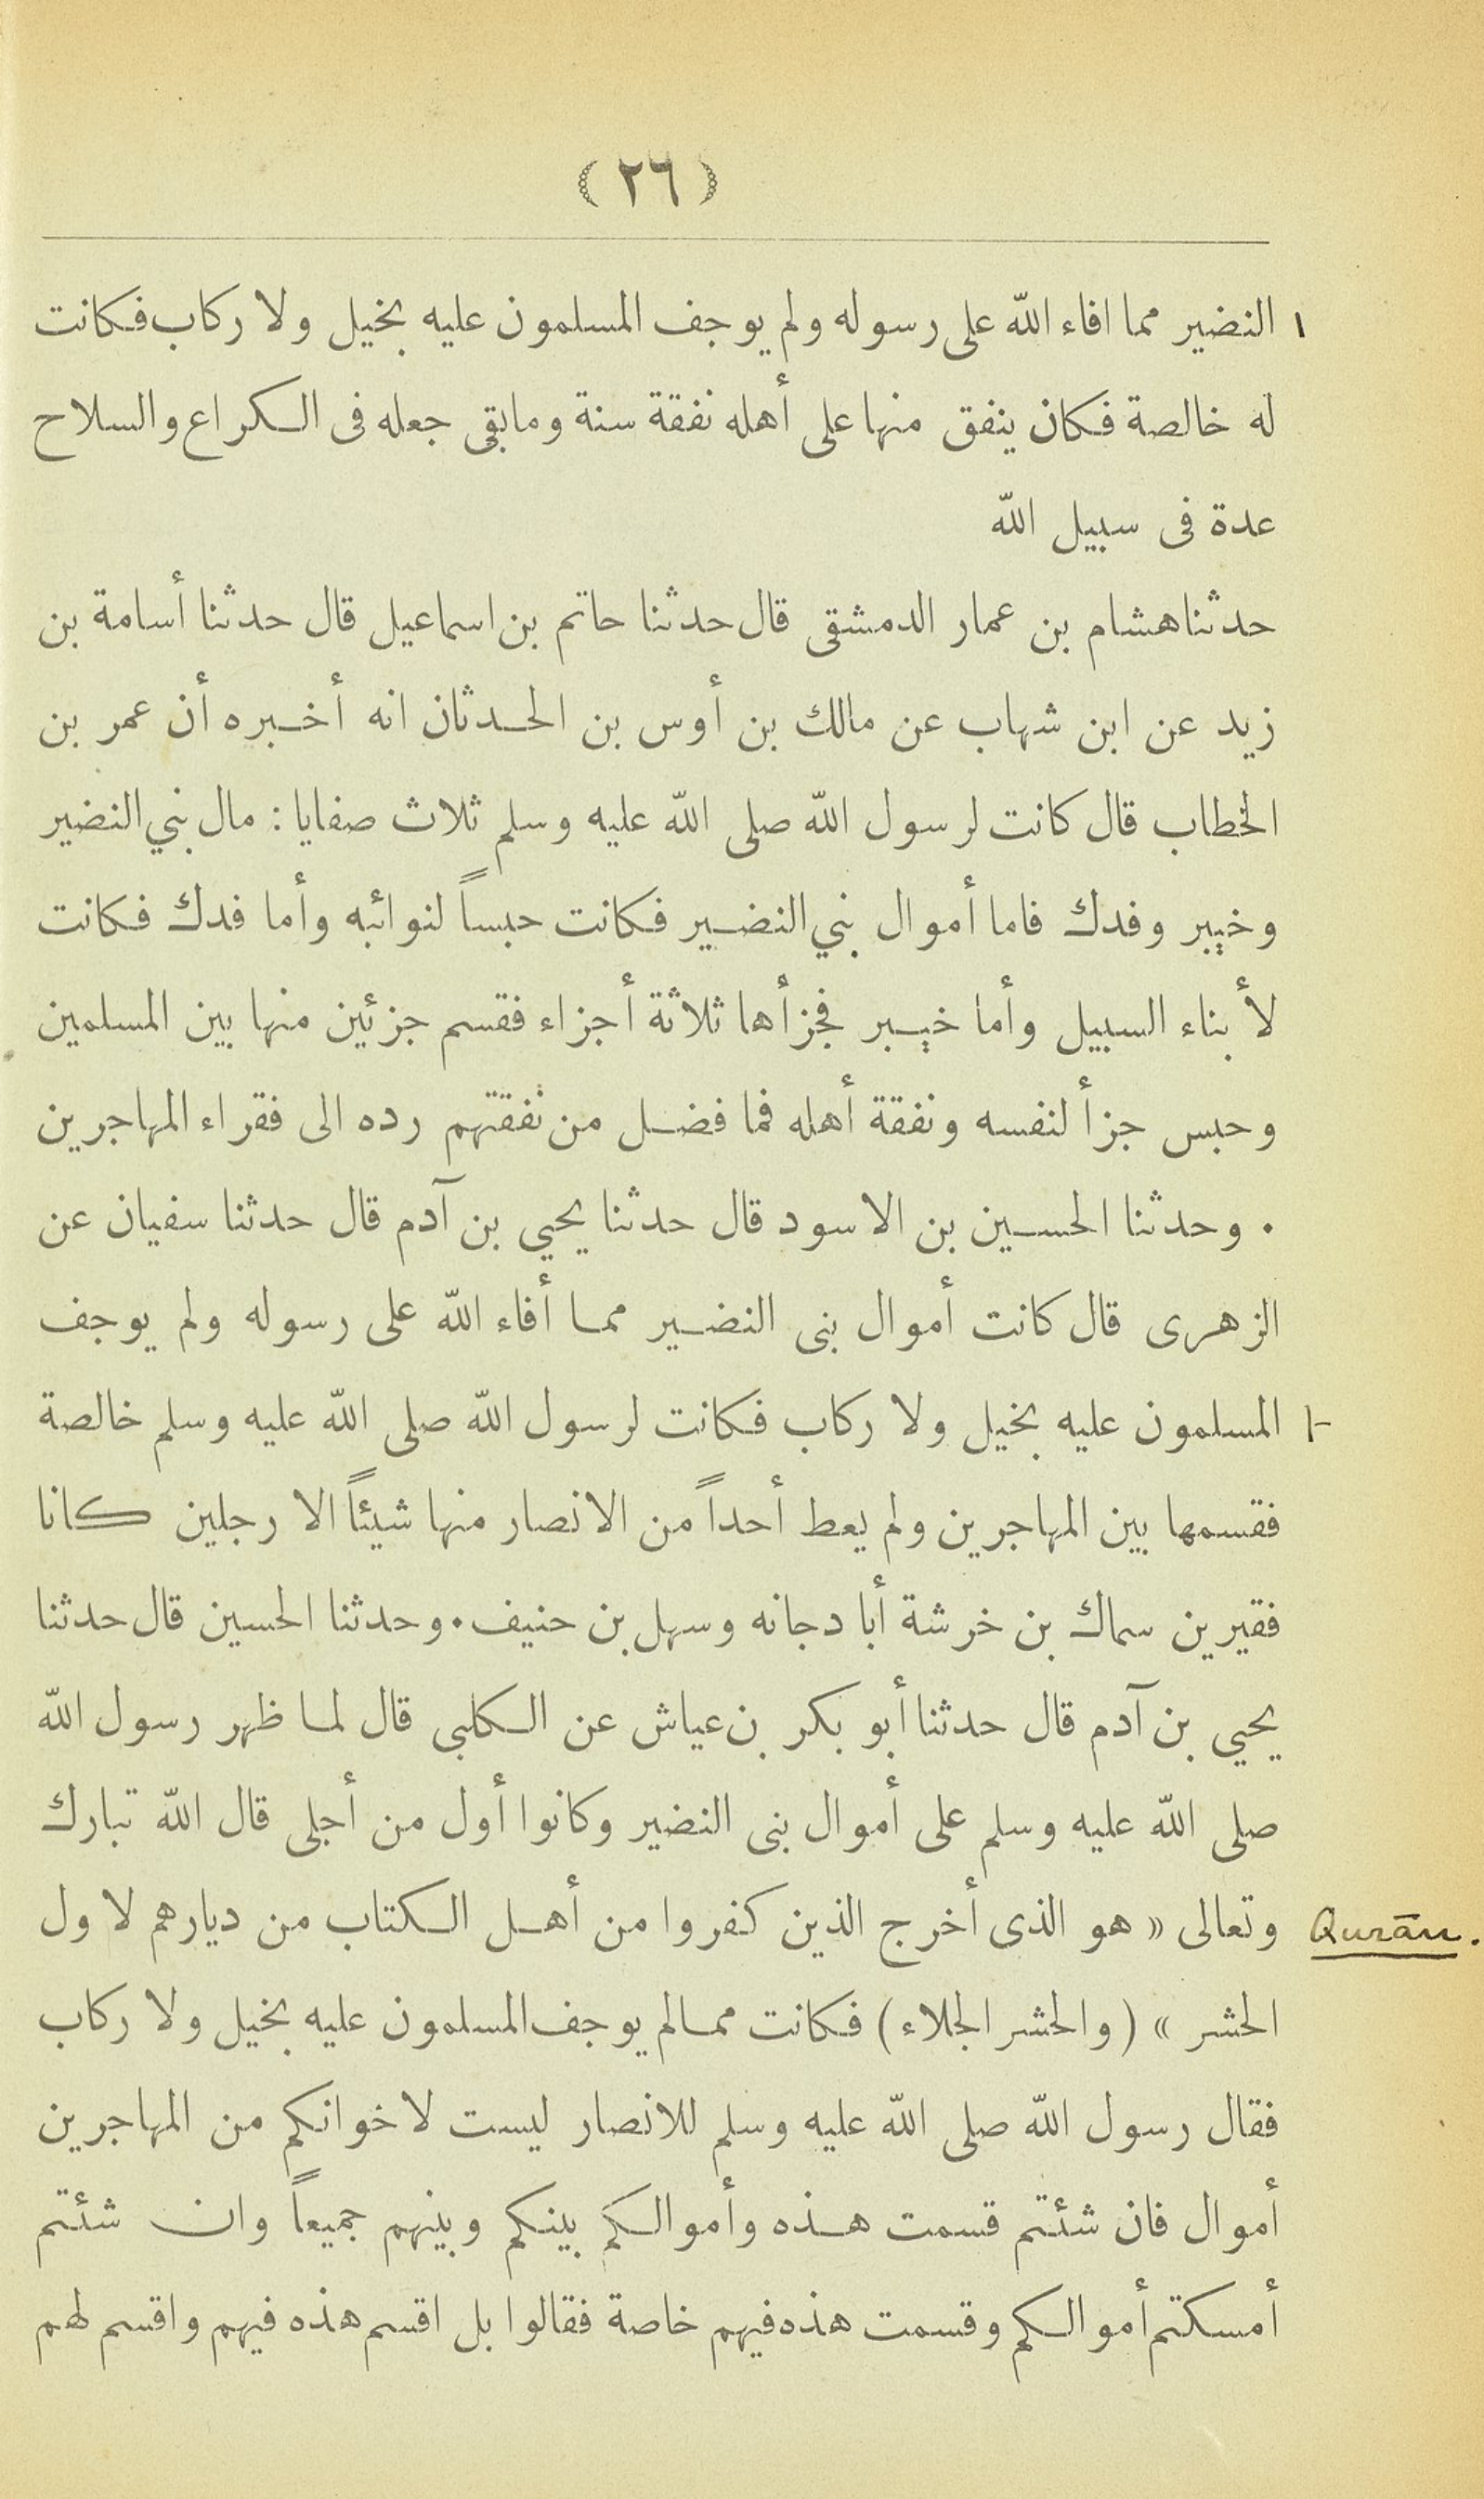 (٢٦)
١ النضير مما افاء الله على رسوله ولم يوجف المسلمون عليه بخيل ولا ركاب فكانت
له خالصة فكان ينفق منها على أهله نفقة سنة وما بقى جعله فى الكراع والسلاح
عدة فى سبيل الله
حدثنا هشام بن عمار الدمشقى قال حدثنا حاتم بن اسماعيل قال حدثنا أسامة بن
زيد عن ابن شهاب عن مالك بن أوس بن الحدثان انه أخبره أن عمر بن
الخطاب قال كانت لرسول الله صلى الله عليه وسلم ثلاث صفايا : مال بني النضير
وخيبر وفدك فاما أموال بني النضير فكانت حبساً لنوائبه وأما فدك فكانت
لأبناء السبيل وأما خيبر فجزأها ثلاثة أجزاء فقسم جزئين منها بين المسلمين
وحبس جزأ لنفسه ونفقة أهله فما فضل من نفقتهم رده الى فقراء المهاجرين
. وحدثنا الحسين بن الاسود قال حدثنا يحيي بن آدم قال حدثنا سفيان عن
الزهرى قال كانت أموال بنى النضير مما أفاء الله على رسوله ولم يوجف
المسلمون عليه بخيل ولا ركاب فكانت لرسول الله صلى الله عليه وسلم خالصة
فقسمها بين المهاجرين ولم يعط أحداً من الانصار منها شيئاً الا رجلين كانا
فقيرين سماك بن خرشة أبا دجانه وسهل بن حنيف . وحدثنا الحسين قال حدثنا
يحيي بن آدم قال حدثنا أبو بكر بن عياش عن الكلبى قال لما ظهر رسول الله
صلى الله عليه وسلم على أموال بنى النضير وكانوا أول من أجلى قال الله تبارك
وتعالى « هو الذى أخرج الذين كفروا من أهل الكتاب من ديارهم لاول
Qurān.
الحشر » (والحشر الجلاء) فكانت مما لم يوجف المسلمون عليه بخيل ولا ركاب
فقال رسول الله صلى الله عليه وسلم للانصار ليست لاخوانكم من المهاجرين
أموال فان شئتم قسمت هذه وأموالكم بينكم وبينهم جميعاً وان شئتم
أمسكتم أموالكم وقسمت هذه فيهم خاصة فقالوا بل اقسم هذه فيهم واقسم لهم